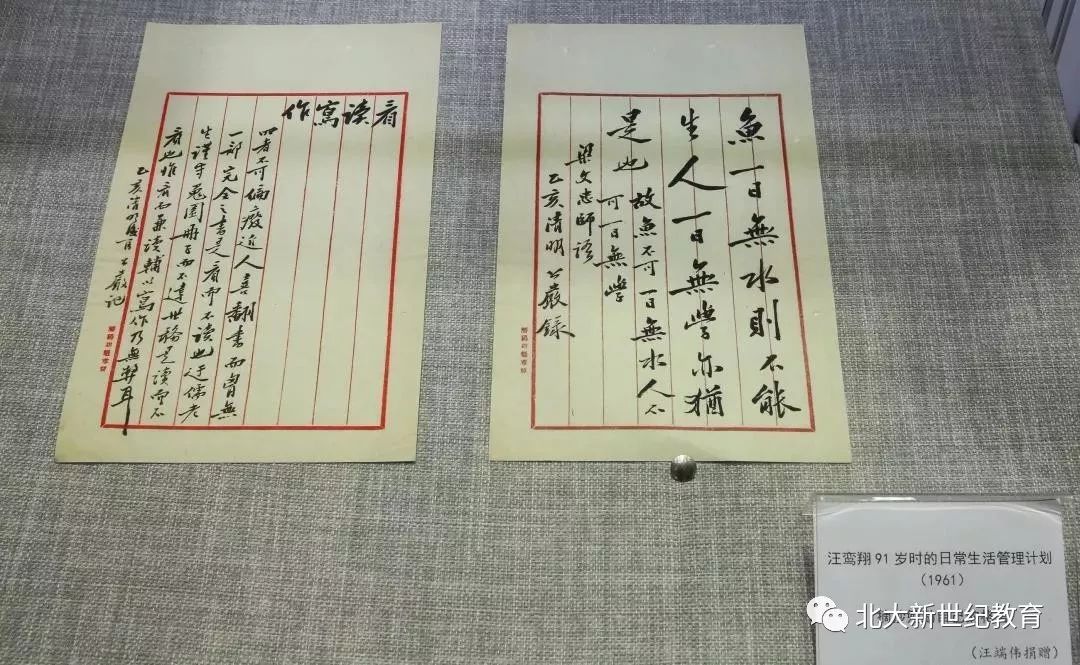 看读寫作
四者不可偏廢近人喜翻書而胷無
一部完全之書是看而不读也迂儒老
生謹守兎園冊子而不達世務是读而不
看也惟看而兼读輔以寫作乃無弊耳
乙亥清明公嚴记
魚一日無水則不能
生人一日無學亦猶
是也
故魚不可一日無水人不
可一日無學
梁文忠師語
乙亥清明公嚴録
汪鸾翔91岁时的日常生活管理计划
（1961）
北大新世纪教育
（汪端伟捐赠）